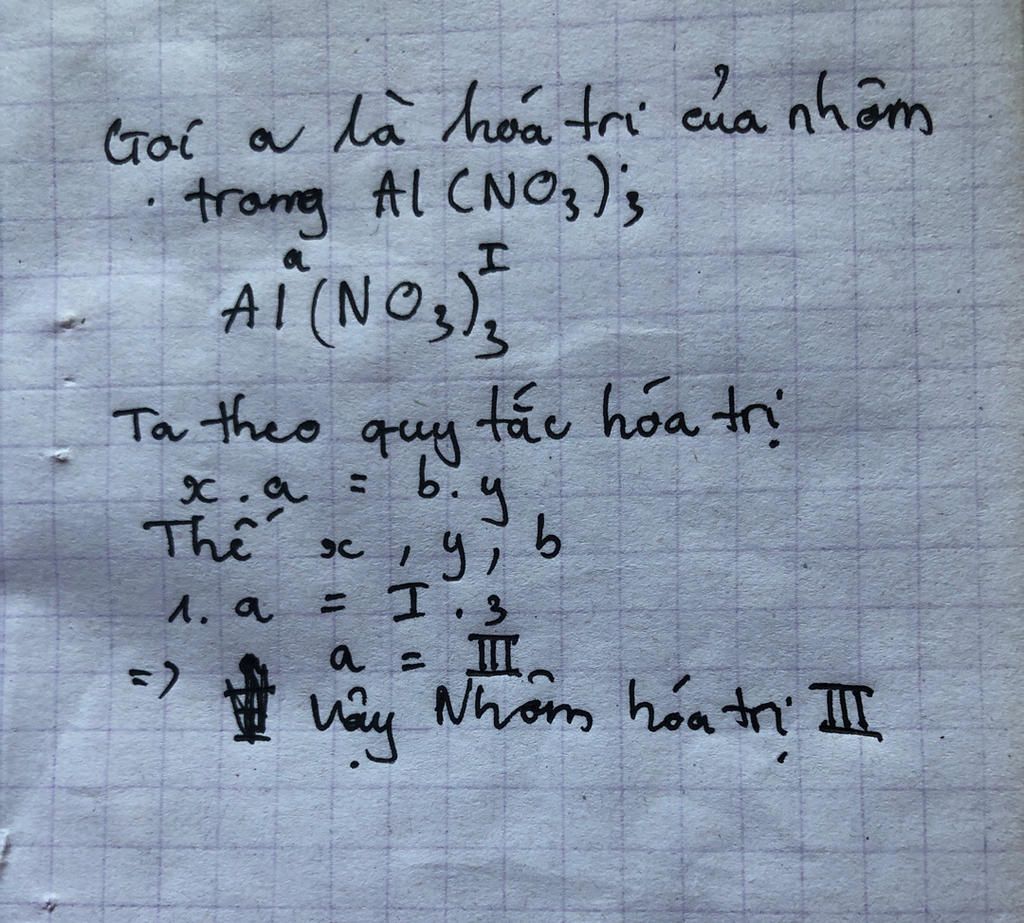 Gọi a là hoá trị của nhôm
trong Al(NO₃)₃
Al^a(NO₃)₃^I
Ta theo quy tắc hóa trị
x . a = b . y
Thế x , y , b
1. a = I . 3
=> a = III
Vậy Nhôm hóa trị III